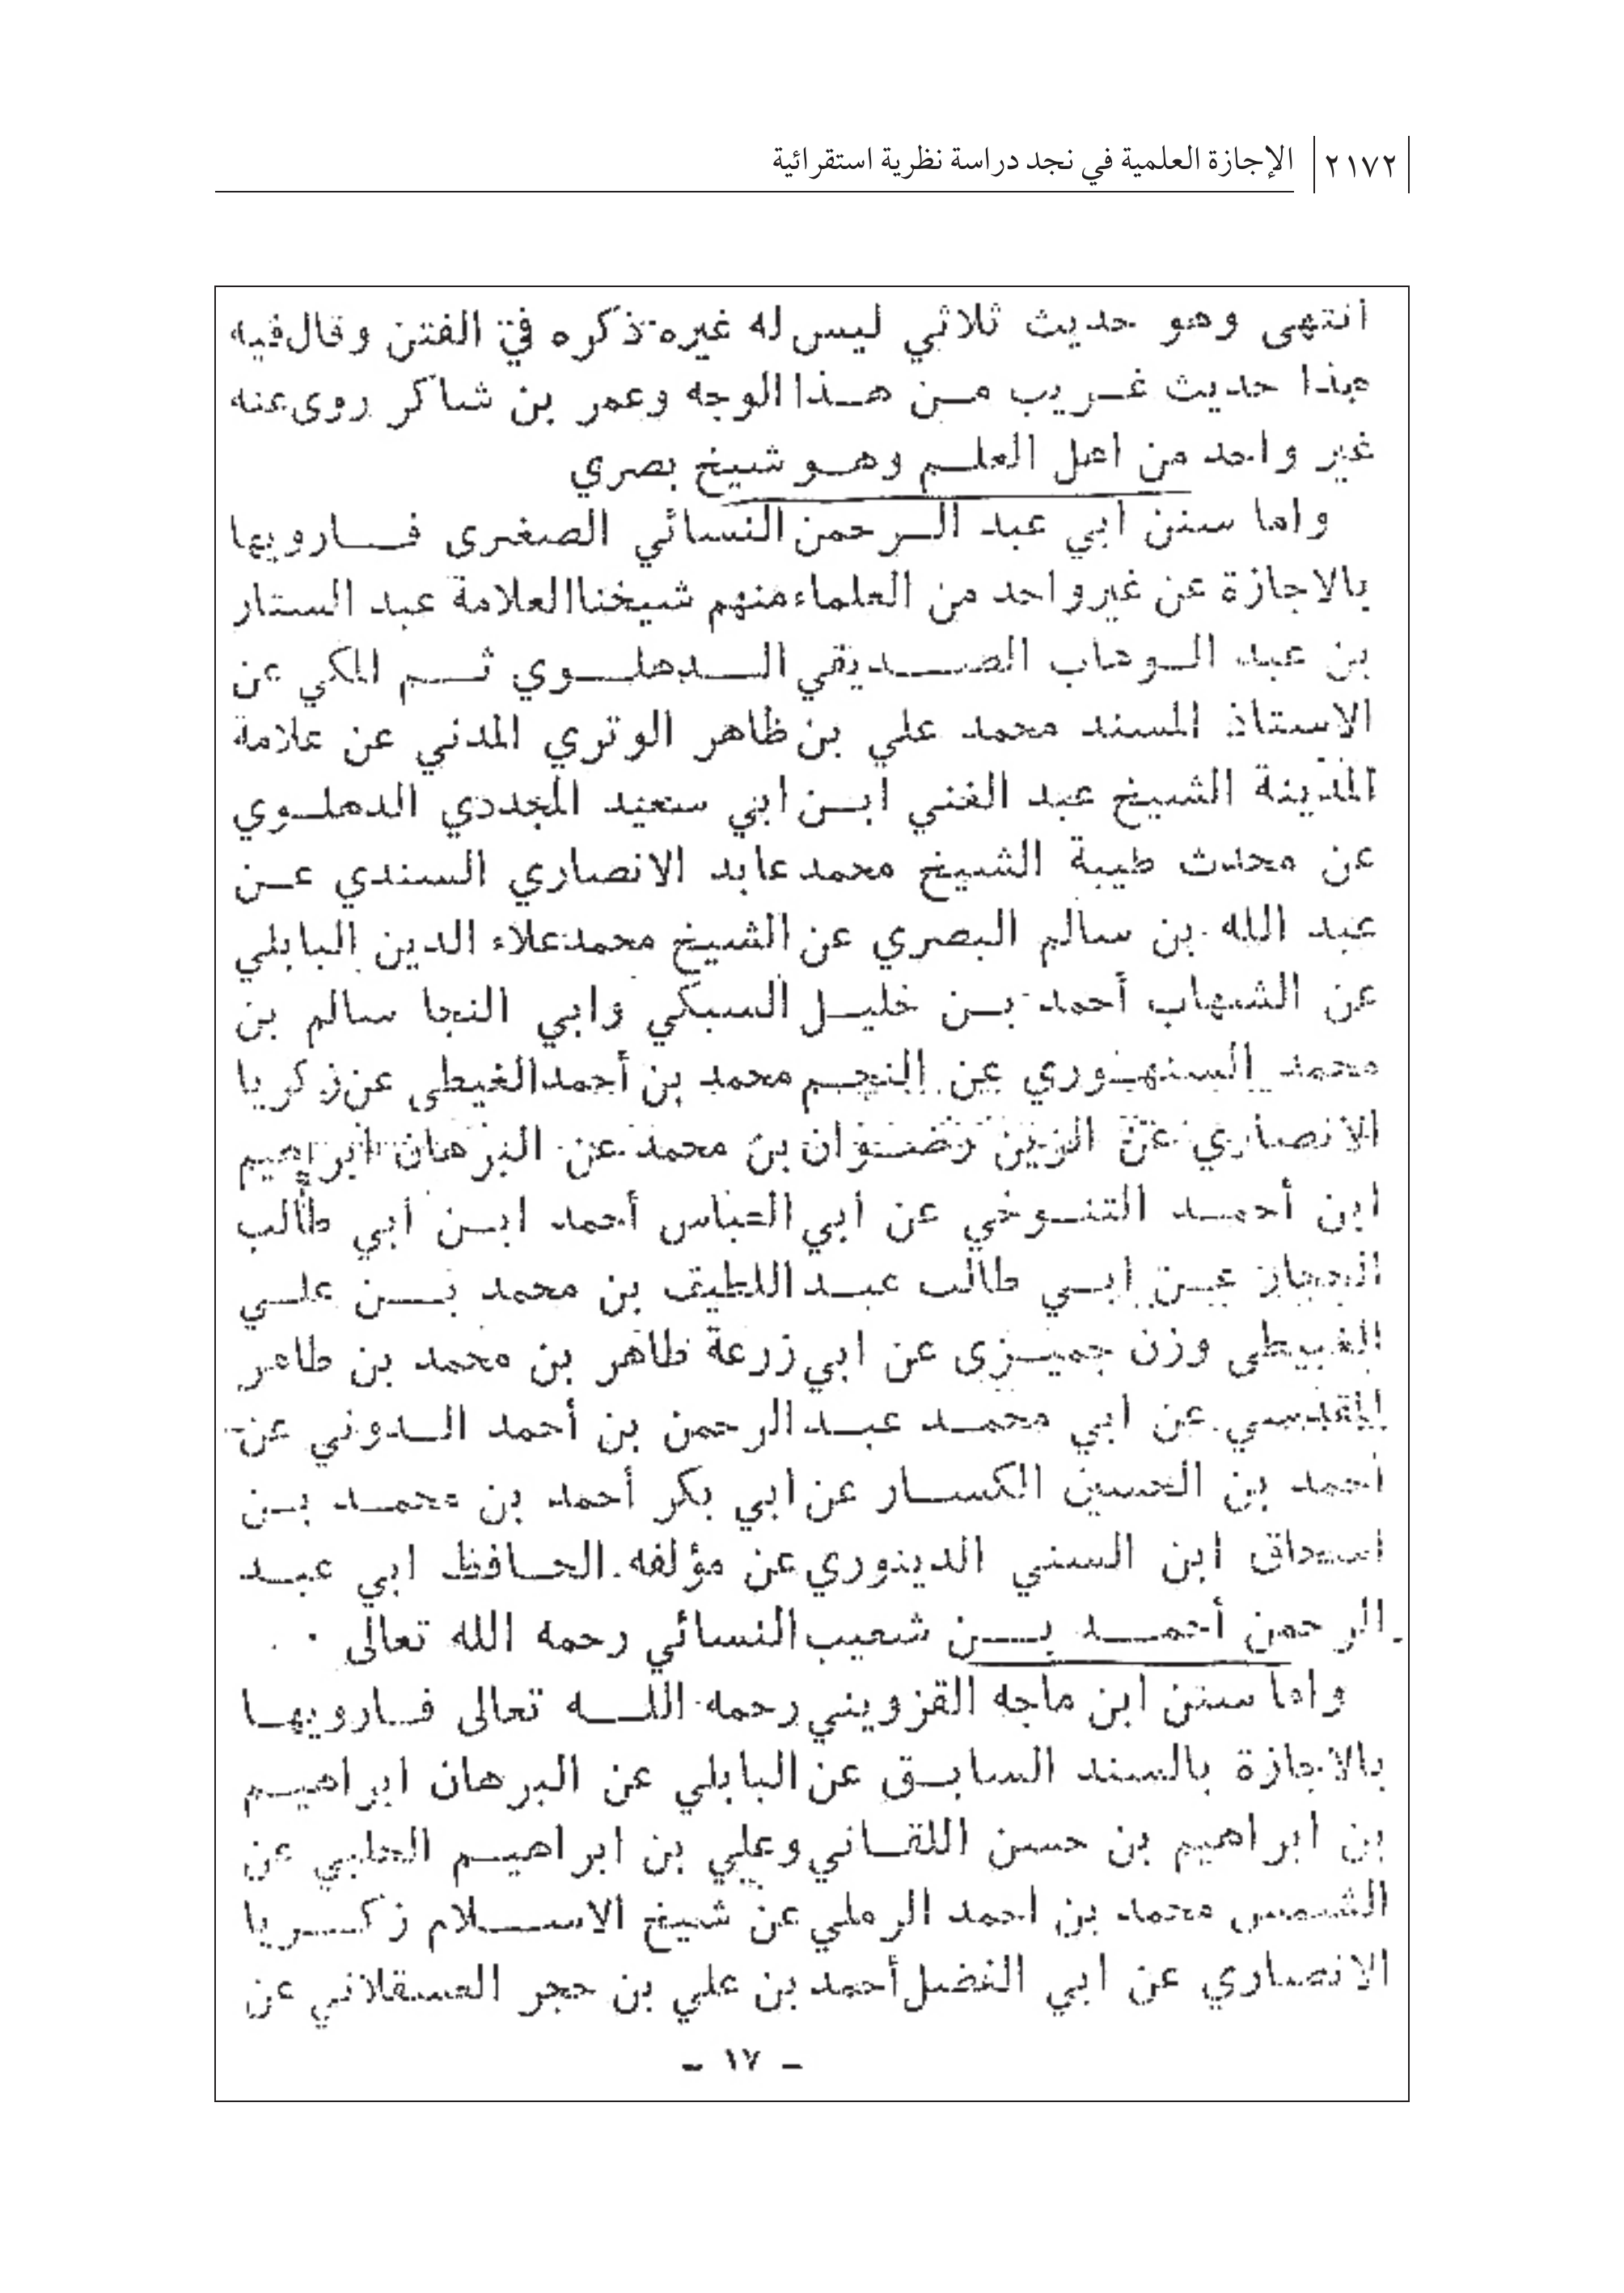 ٢١٧٢ الإجازة العلمية في نجد دراسة نظرية استقرائية
انتهى وهو حديث ثلاثي ليس له غيره ذكره في الفتن وقال فيه
هذا حديث غريب من هذا الوجه وعمر بن شاكر روى عنه
غير واحد من اهل العلم وهو شيخ بصري
واما سنن ابي عبد الرحمن النسائي الصغرى فارويها
بالاجازة عن غير واحد من العلماء منهم شيخنا العلامة عبد الستار
بن عبد الوهاب الصديقي الدهلوي ثم المكي عن
الاستاذ المسند محمد علي بن ظاهر الوتري المدني عن علامة
المدينة الشيخ عبد الغني ابن ابي سعيد المجددي الدهلوي
عن محدث طيبة الشيخ محمد عابد الانصاري السندي عن
عبد الله بن سالم البصري عن الشيخ محمد علاء الدين البابلي
عن الشهاب أحمد بن خليل السبكي وابي النجا سالم بن
محمد السنهوري عن النجم محمد بن أحمد الغيطى عن زكريا
الانصاري عن الزين رضوان بن محمد عن البرهان ابراهيم
ابن أحمد التنوخي عن أبي العباس أحمد ابن أبي طالب
الحجاز عن ابي طالب عبد اللطيف بن محمد بن علي
القبيطى وزن جميزى عن ابي زرعة طاهر بن محمد بن طاهر
المقدسي عن ابي محمد عبد الرحمن بن أحمد الدوني عن
أحمد بن الحسين الكسار عن ابي بكر أحمد بن محمد بن
اسحاق ابن السني الدينوري عن مؤلفه الحافظ ابي عبد
الرحمن أحمد بن شعيب النسائي رحمه الله تعالى ٠
واما سنن ابن ماجه القزويني رحمه الله تعالى فارويها
بالاجازة بالسند السابق عن البابلي عن البرهان ابراهيم
بن ابراهيم بن حسن اللقاني وعلي بن ابراهيم الحلبي عن
الشمس محمد بن احمد الرملي عن شيخ الاسلام زكريا
الانصاري عن ابي الفضل أحمد بن علي بن حجر العسقلاني عن
- ١٧ -